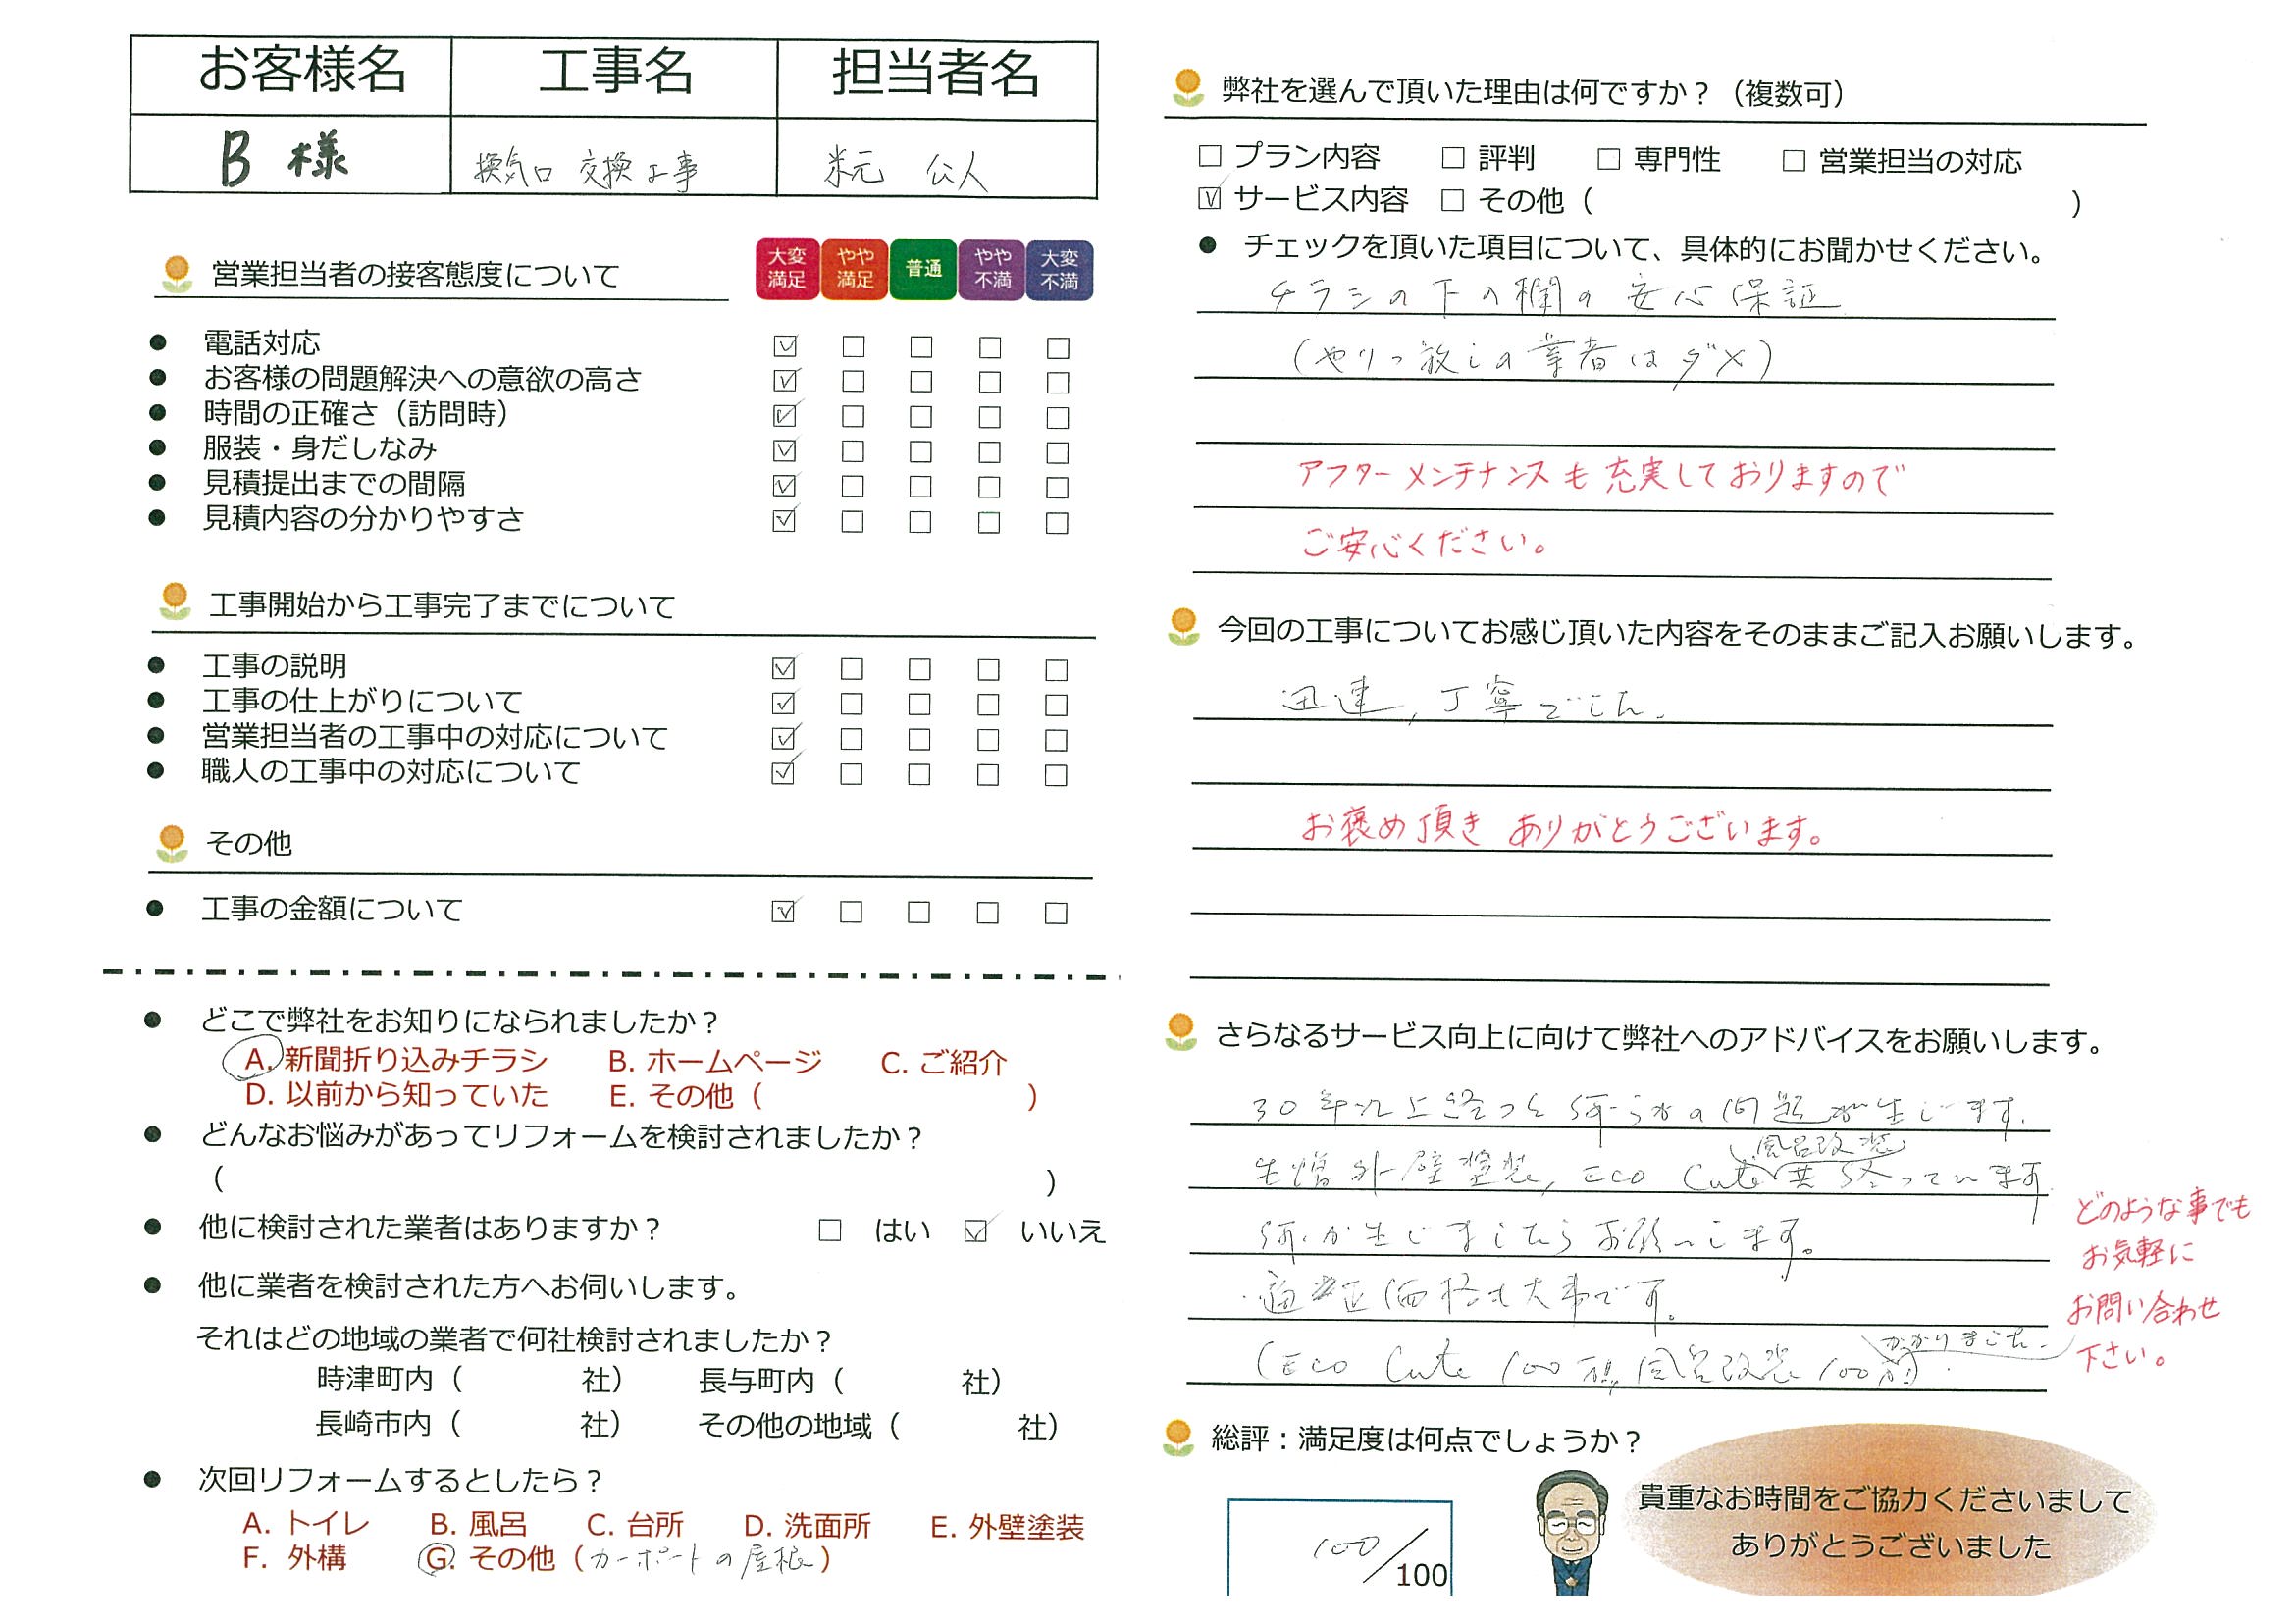 お客様名 工事名 担当者名
B 様 換気口 交換工事 米元 公人
営業担当者の接客態度について
大変満足 やや満足 普通 やや不満 大変不満
● 電話対応 ☑ □ □ □ □
● お客様の問題解決への意欲の高さ ☑ □ □ □ □
● 時間の正確さ（訪問時） ☑ □ □ □ □
● 服装・身だしなみ ☑ □ □ □ □
● 見積提出までの間隔 ☑ □ □ □ □
● 見積内容の分かりやすさ ☑ □ □ □ □
工事開始から工事完了までについて
● 工事の説明 ☑ □ □ □ □
● 工事の仕上がりについて ☑ □ □ □ □
● 営業担当者の工事中の対応について ☑ □ □ □ □
● 職人の工事中の対応について ☑ □ □ □ □
その他
● 工事の金額について ☑ □ □ □ □
● どこで弊社をお知りになられましたか？
A. 新聞折り込みチラシ B. ホームページ C. ご紹介
D. 以前から知っていた E. その他（ ）
● どんなお悩みがあってリフォームを検討されましたか？
（ ）
● 他に検討された業者はありますか？ □ はい ☑ いいえ
● 他に業者を検討された方へお伺いします。
それはどの地域の業者で何社検討されましたか？
時津町内（ 社） 長与町内（ 社）
長崎市内（ 社） その他の地域（ 社）
● 次回リフォームするとしたら？
A. トイレ B. 風呂 C. 台所 D. 洗面所 E. 外壁塗装
F. 外構 G. その他（カーポートの屋根）
弊社を選んで頂いた理由は何ですか？（複数可）
□ プラン内容 □ 評判 □ 専門性 □ 営業担当の対応
☑ サービス内容 □ その他（ ）
● チェックを頂いた項目について、具体的にお聞かせください。
チラシの下の欄の安心保証
（やりっ放しの業者はダメ）
アフターメンテナンスも充実しておりますので
ご安心ください。
今回の工事についてお感じ頂いた内容をそのままご記入お願いします。
迅速，丁寧でした。
お褒め頂き ありがとうございます。
さらなるサービス向上に向けて弊社へのアドバイスをお願いします。
30年以上経つと何らかの問題が生じます。
生憎外壁塗装，Eco Cute 風呂改装 共終っています
何か生じましたらお願いします。
適正価格も大事です。
（Eco Cute 100万、風呂改装 100万） かかりました。
どのような事でも
お気軽に
お問い合わせ
下さい。
総評：満足度は何点でしょうか？
100/100
貴重なお時間をご協力くださいまして
ありがとうございました